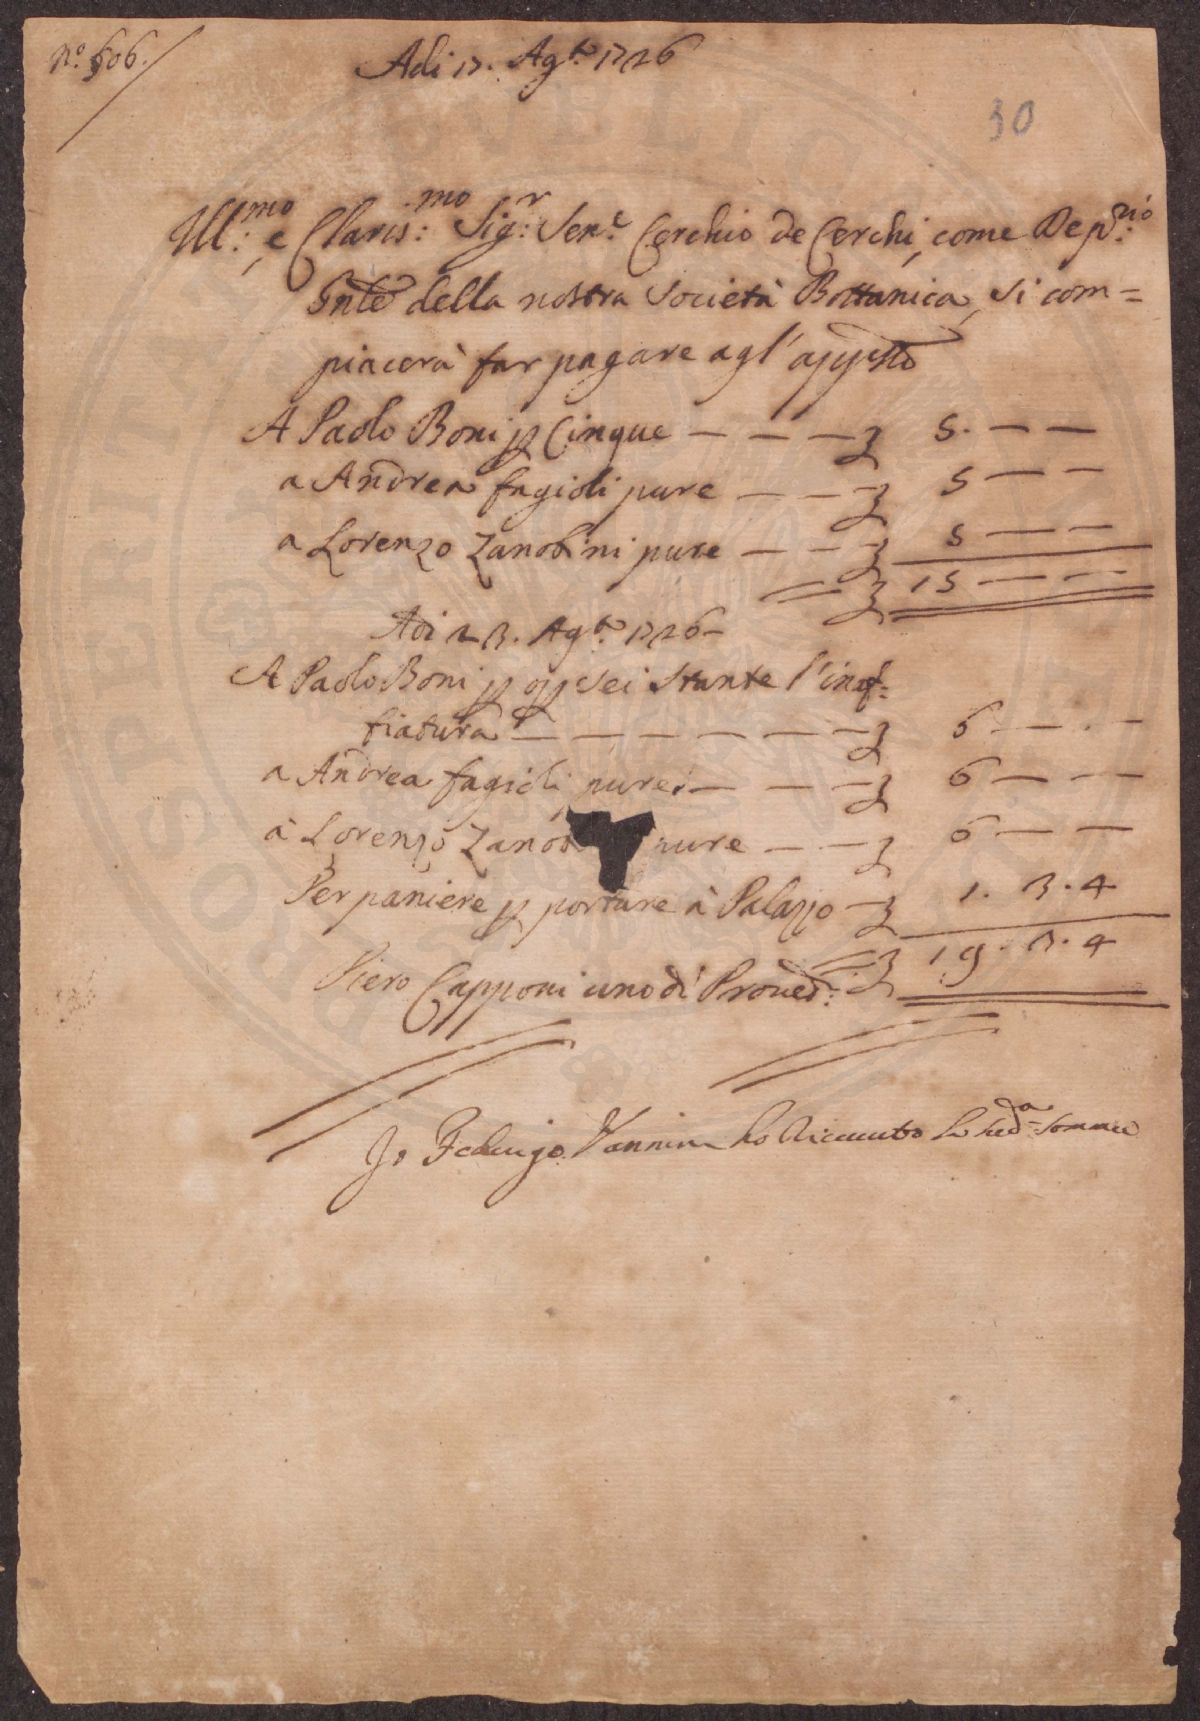 N.º 606.
Adi 17. Ag.to 1726
30
Ill:mo e Claris:mo Sig:r Sen.e Cerchio de Cerchi, come Dep:rio
della nostra Società Bottanica, si com=
piacerà far pagare agl'appiesto
A Paolo Boni p Cinque — — — 5. — —
a Andrea fagioli pure — — — 5 — —
a Lorenzo Zanobini pure — — — 5 — —
15 — —
Adi 23. Ag.to 1726 —
A Paolo Boni p sei stante l'inaf=
fiatura — — — — — — 6 — —
a Andrea fagioli pure — — — 6 — —
à Lorenzo Zanob pure — — — 6 — —
Per paniere p portare à Palazzo — 1. 3. 4
19. 3. 4
Piero Capponi uno di Proved:
Io Federigo Vannini ho Riceuuto la sud.a somma